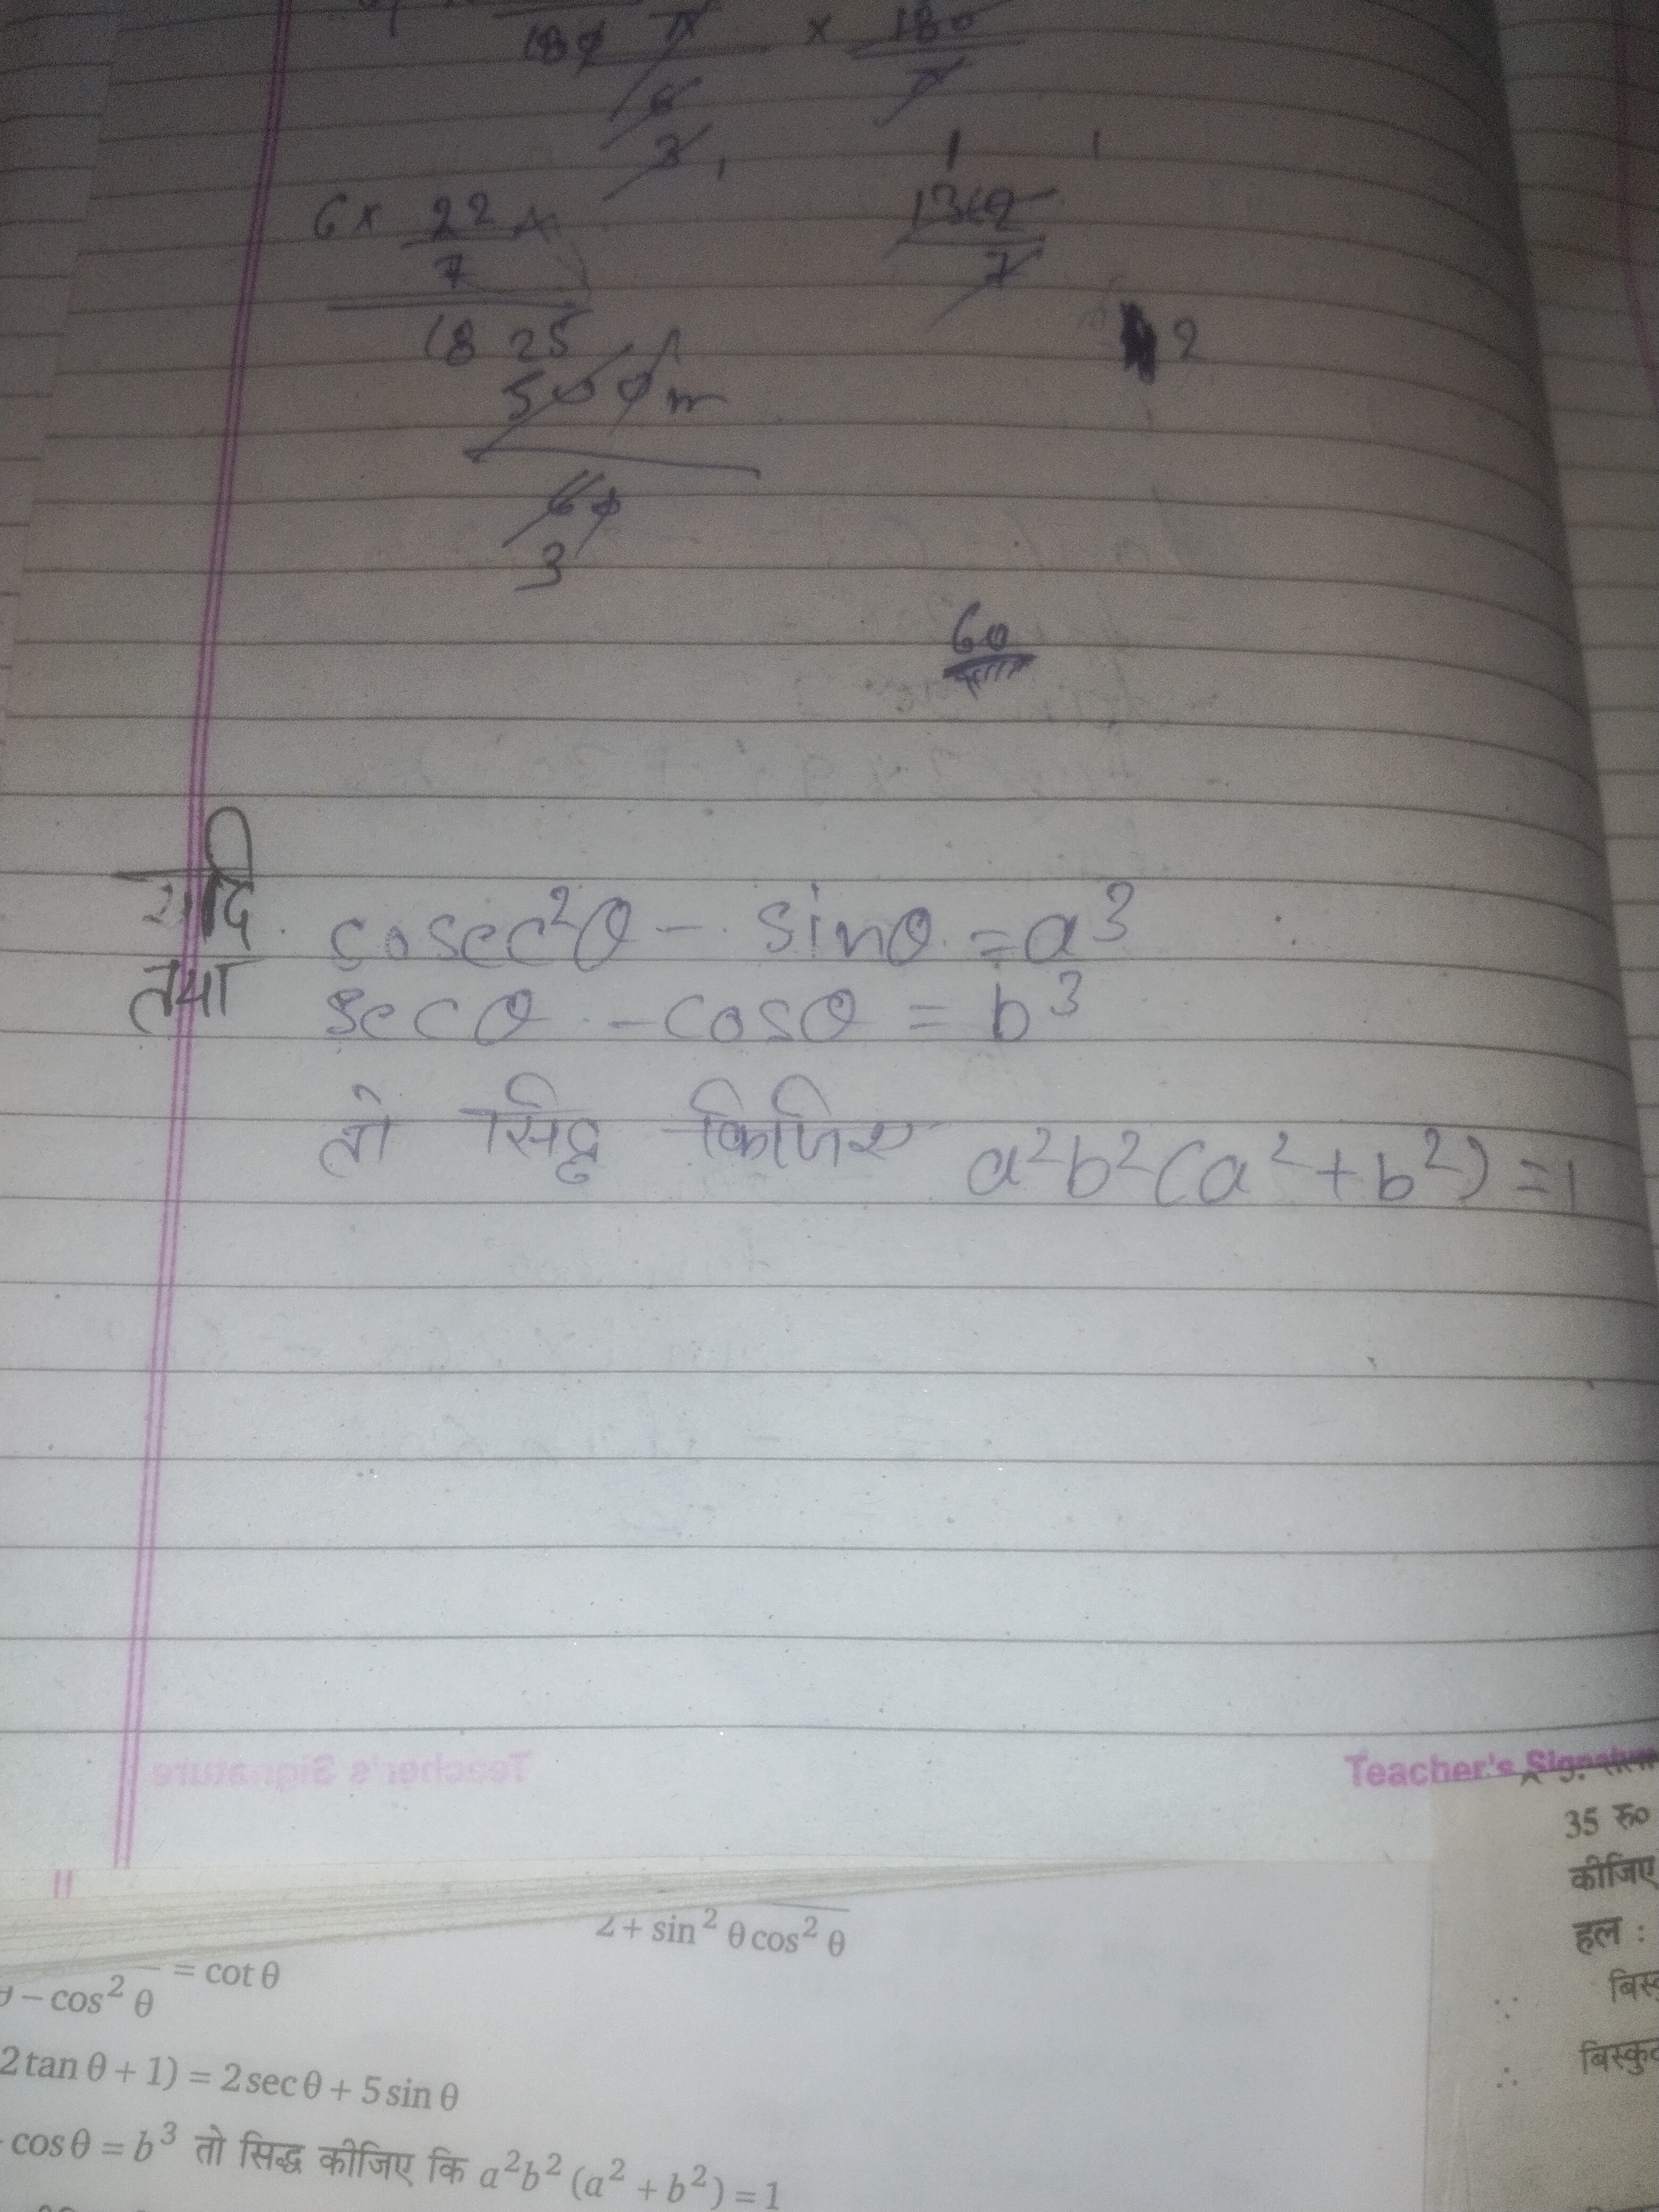 180 π × 180
6
3
6 × 22
7
1360
7
2
18 25
500 π
60
3
60
यदि cosec²θ - sinθ = a³
तथा secθ - cosθ = b³
तो सिद्ध किजिए a²b²(a²+b²)=1
Teacher's Signature
35 रु०
कीजिए
हल :
2 + sin² θ cos² θ
- cos² θ = cot θ
∵
∴
2 tan θ + 1) = 2 sec θ + 5 sin θ
cos θ = b³ तो सिद्ध कीजिए कि a²b² (a² + b²) = 1